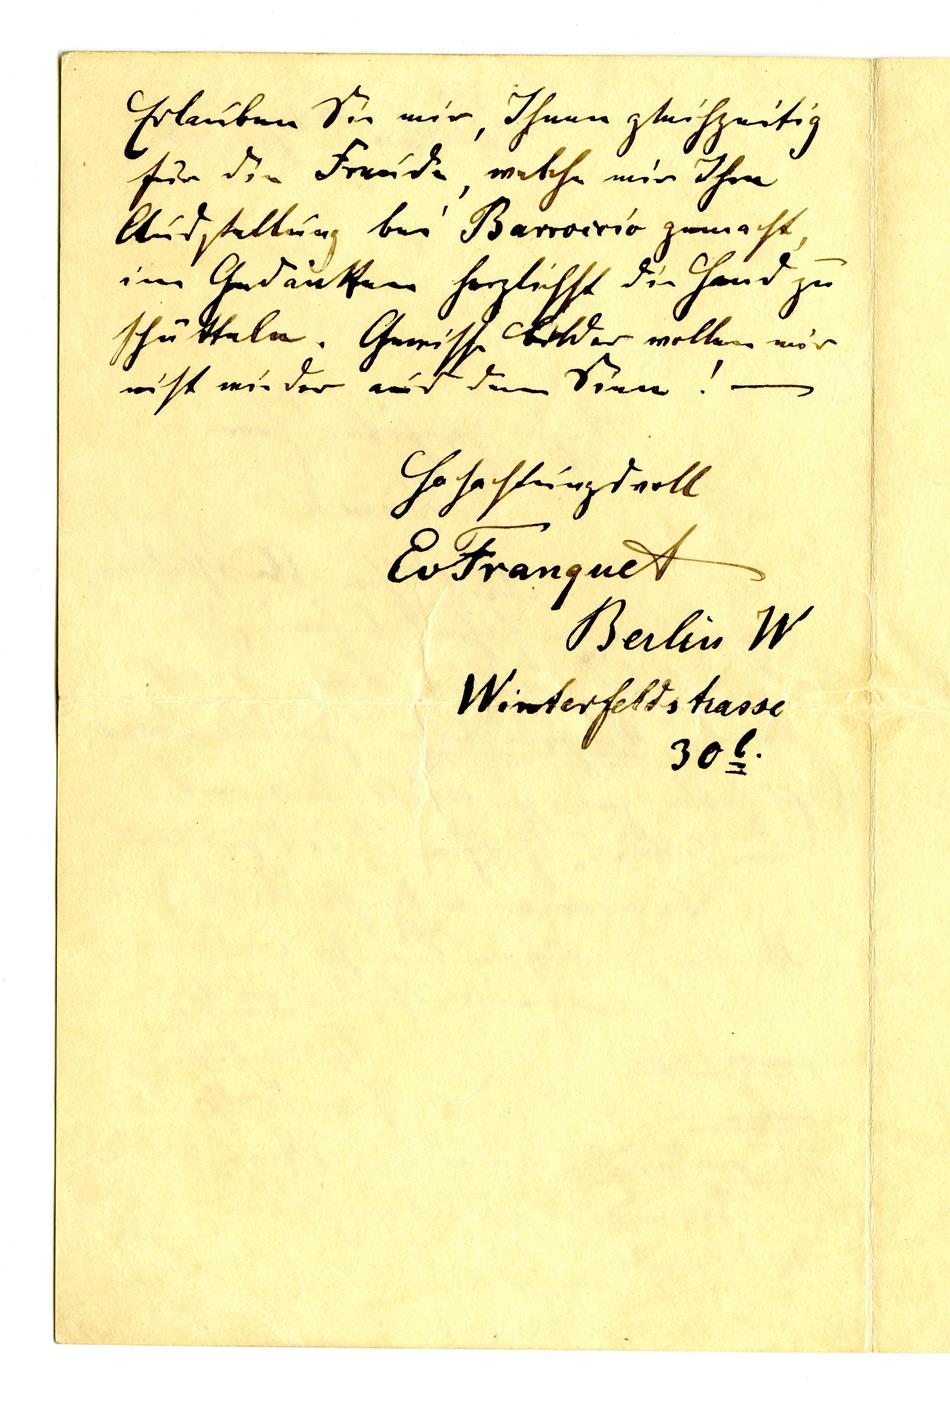 Erlauben Sie mir, Ihnen gleichzeitig
für die Freude, welche mir Ihre
Ausstellung bei Barroccio gemacht,
im Gedanken herzlichst die Hand zu
schütteln. Gewisse Bilder wollen mir
nicht wieder aus dem Sinn! —
Hochachtungsvoll
EvFranquet
Berlin W
Winterfeldstrasse
30 b.